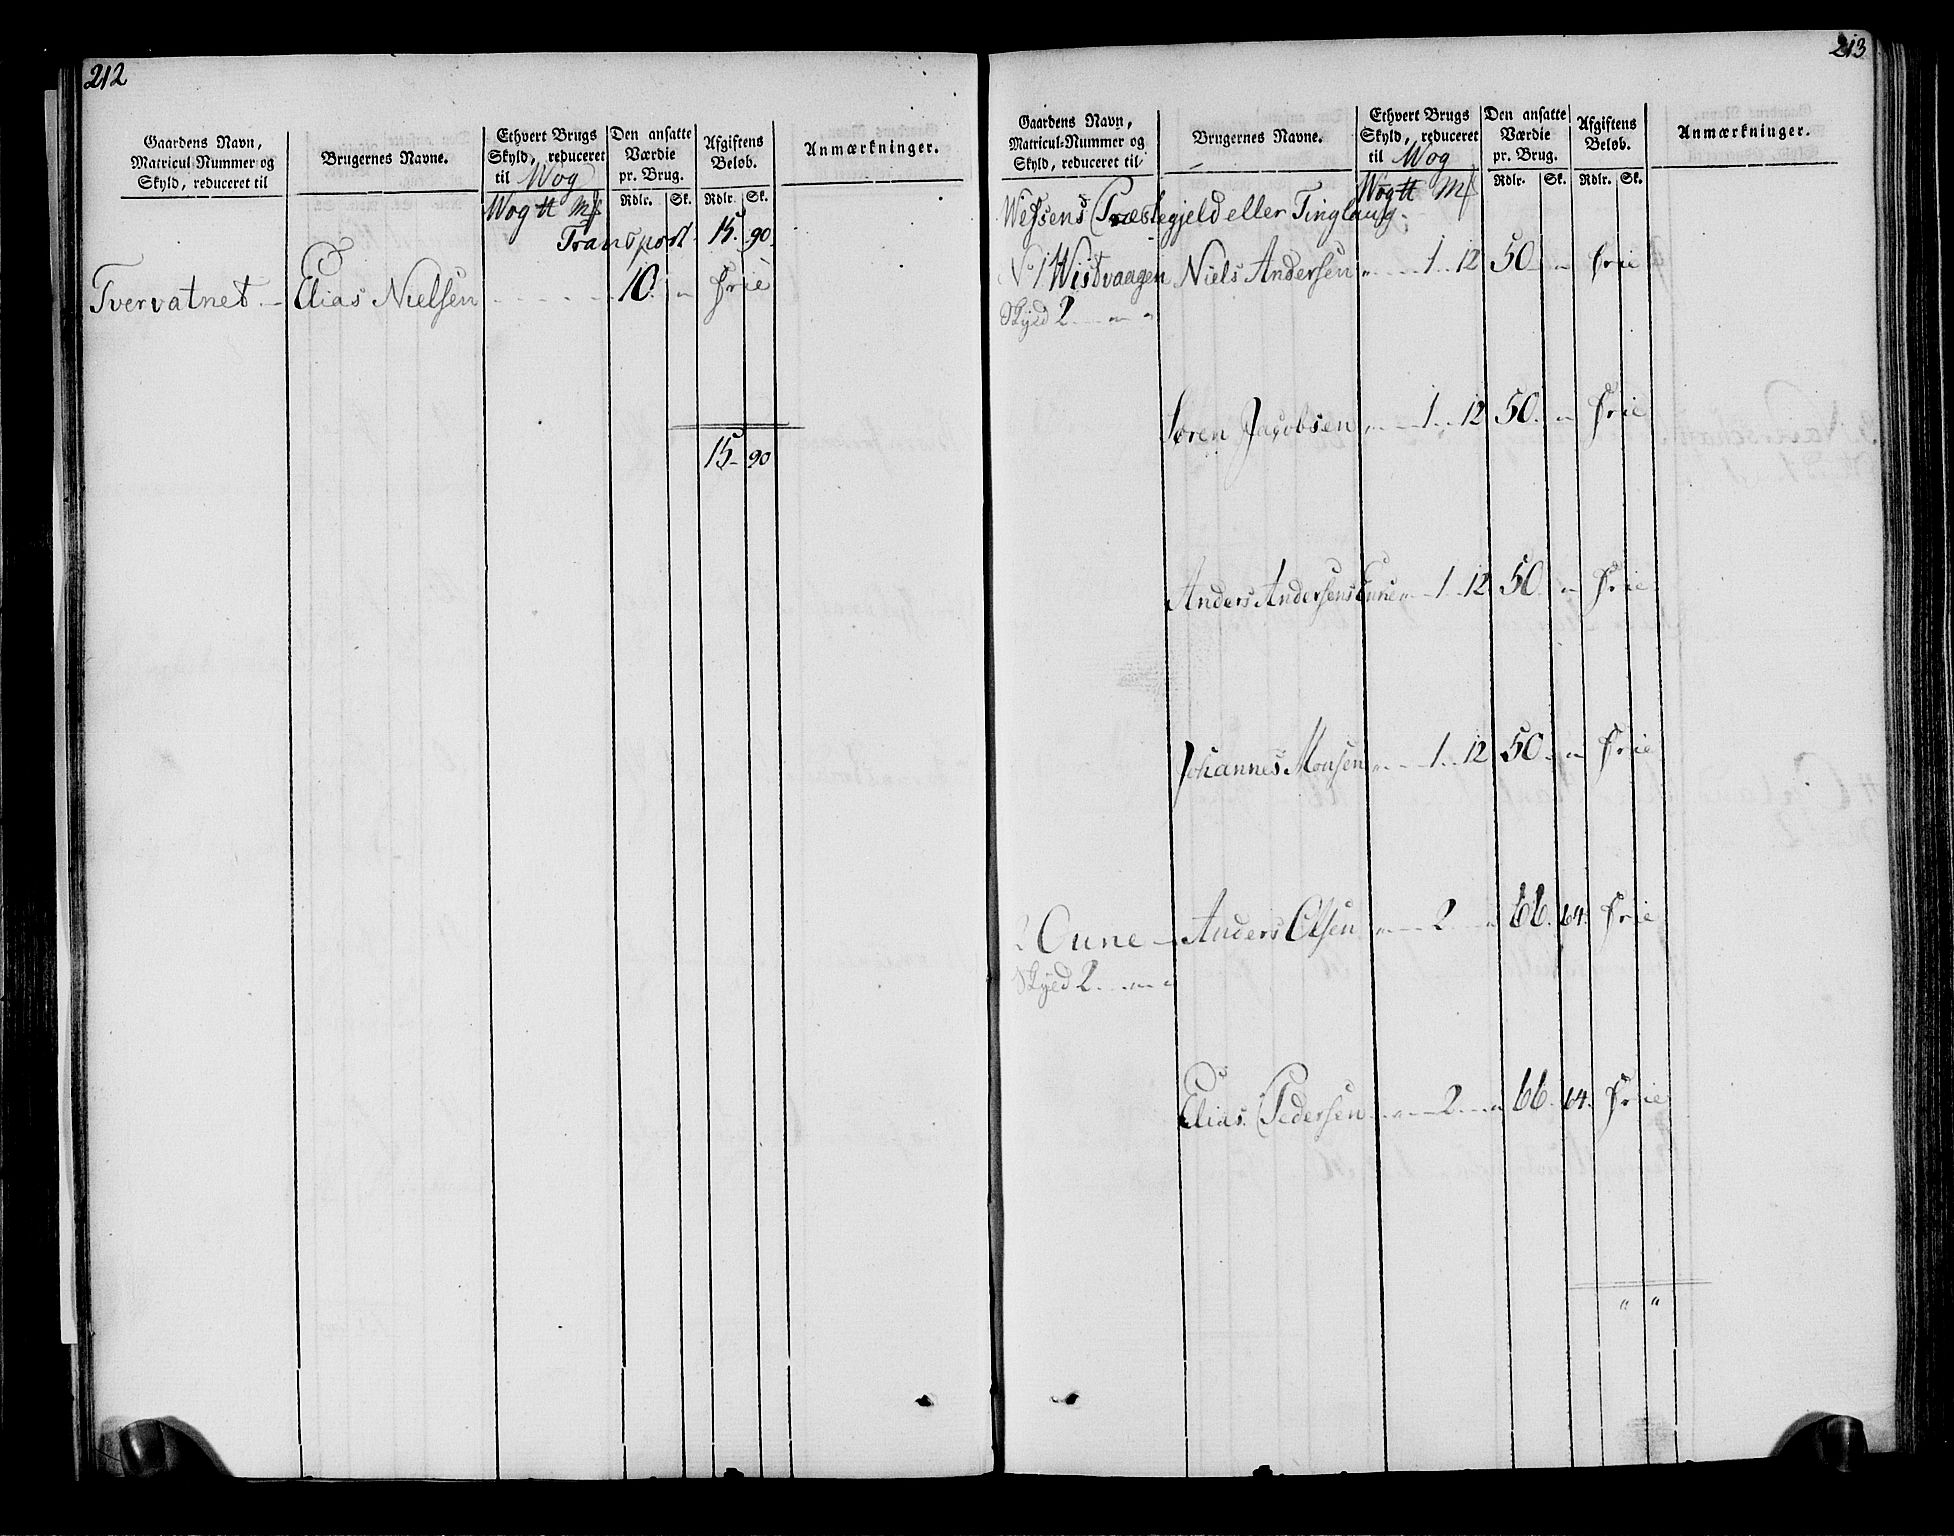 212
Gaardens Navn, Matricul-Nummer og Skyld, reduceret til
Brugernes Navne.
Ethvert Brugs Skyld, reduceret til Wog
Den ansatte Værdie pr. Brug.
Afgiftens Beløb.
Anmærkninger.
Wog ℔ Mk
Rdlr. Sk. Rdlr. Sk.
Transport. 15. 90.
Tvervatnet. Elias Nielsen 10. „ frie
15 90
213
Gaardens Navn, Matricul-Nummer og Skyld, reduceret til
Brugernes Navne.
Ethvert Brugs Skyld, reduceret til Wog
Den ansatte Værdie pr. Brug.
Afgiftens Beløb.
Anmærkninger.
Wog ℔ Mk
Rdlr. Sk. Rdlr. Sk.
Præstegjeld eller Tinglaug.
No 1 Wistvaagen Niels Andersen „ 1 12 50 „ frie
Skyld 2 „ „
Søren Jacobsen „ 1 12 50 „ frie
Anders Andersens Enke „ 1 12 50 „ frie
Johannes Monsen „ 1 12 50 „ frie
2 Oune Anders Olsen „ 2 „ 66. 64. frie
Skyld 2 „ „
Elias Pedersen „ 2 „ 66. 64. frie
„ „